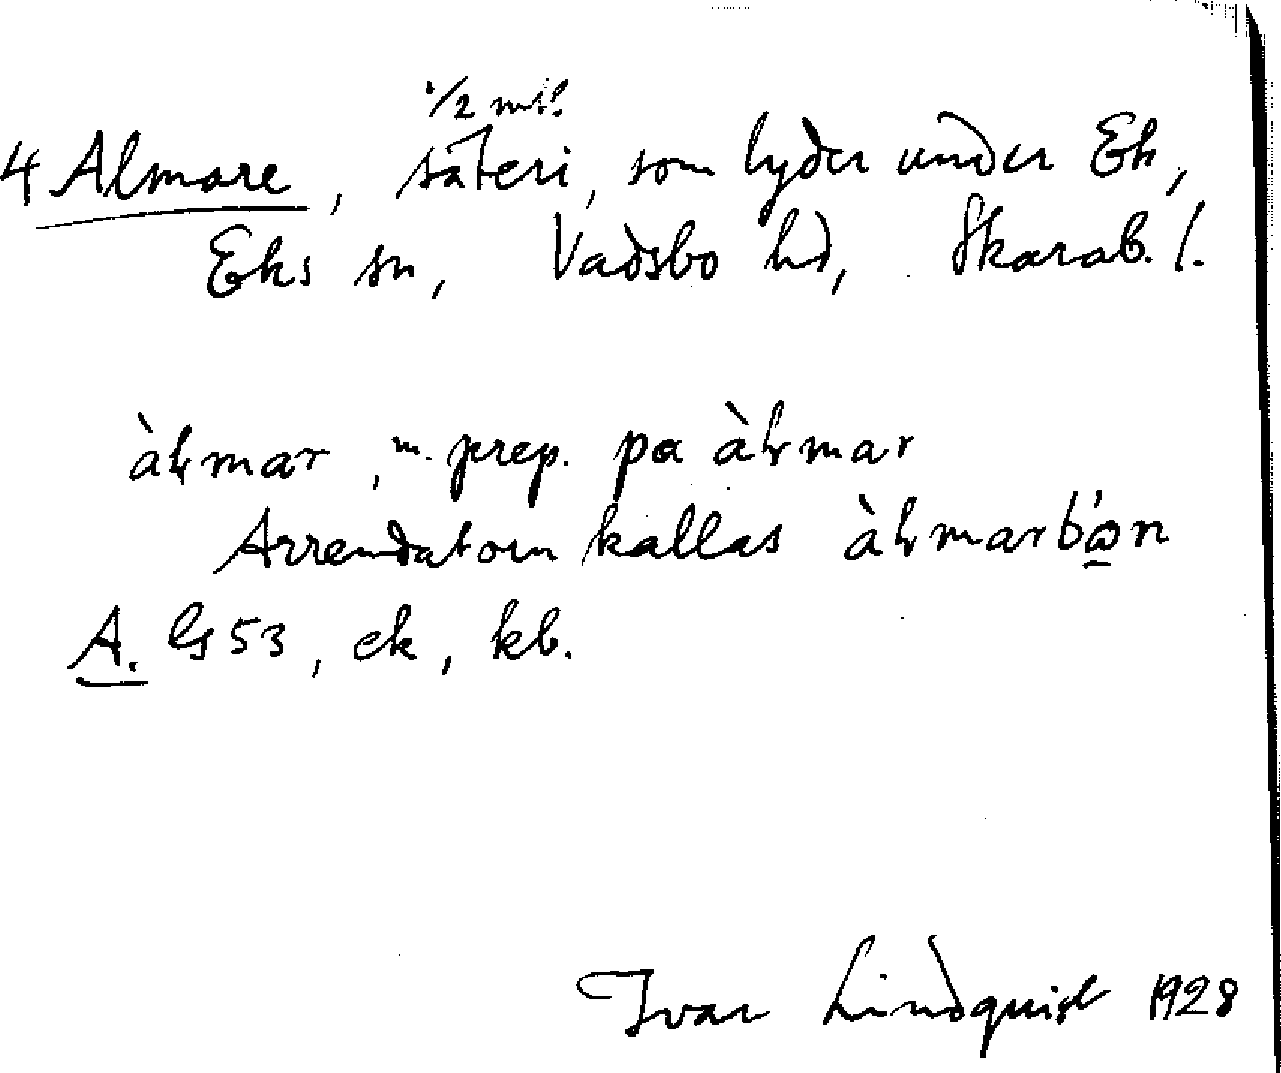 1/2 mtl.
4 Almare, säteri, som lyder under Ek,
Eks sn, Vadsbo hd, Skarab. l.
àƚmar, m. prep. pa àƚmar
Arrendatorn kallas
A. G 53, ek, kb.
Ivar Lindquist 1928